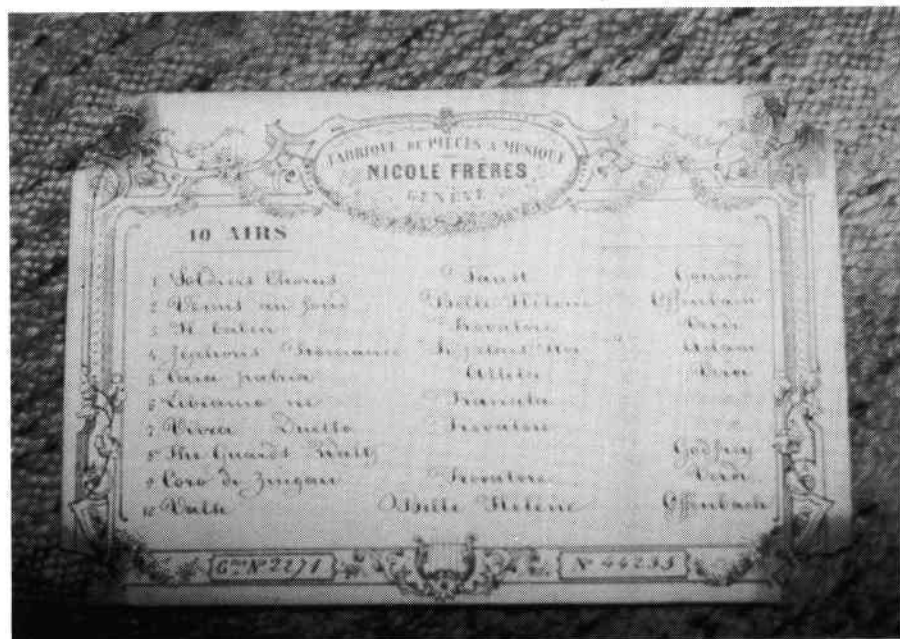 FABRIQUE DE PIÈCES À MUSIQUE
NICOLE FRÈRES
GENÈVE
10 AIRS
1 Soldiers Chorus Faust Gounod
2 Venus au fond Belle Hélène Offenbach
3 Il balen Trovatore Verdi
4 Romance Si j'étais Roi Adam
5 Cara patria Attila Verdi
6 Libiamo ne Traviata
7 Vivra Duetto Trovatore
8 The Guards Waltz Godfrey
9 Coro di Zingari Trovatore Verdi
10 Valse Belle Hélène Offenbach
Gme No 2271 No 44233